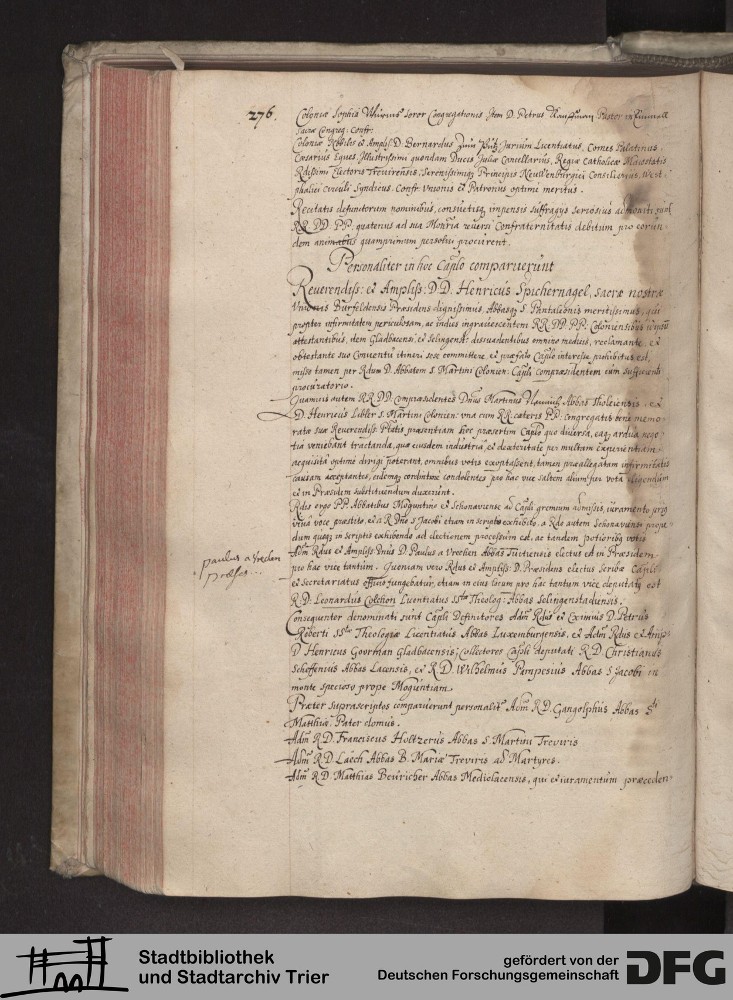 276.
Coloniæ Sophia soror Congregationis. Item D. Petrus Kauffman Pastor in
sacræ Congreg: Confr:
Coloniæ Nobilis et Ampliss: D. Bernardus zum Pütz Jurium Licentiatus, Comes Palatinus,
Cæsarius Eques, Illustrissimi quondam Ducis Juliæ Cancellarius, Regiæ Catholicæ Maiestatis
Rdissimi Electoris Trevirensis, Serenissimiq Principis Neuwenburgici Consiliarius, West-
phalici Circuli Syndicus. Confr: Vnionis et Patronus optimè meritus.
Recitatis defunctorum nominibus, consuetisq impensis suffragijs seriosius admoniti sunt
RR. DD. PP. quatenus ad sua Monria reversi Confraternitatis debitum pro eorun-
dem animabus quamprimum persolvi procurent.
Personaliter in hoc Caplo comparuerunt
Reverendiss: et Ampliss: D.D. Henricus Spichernagel, sacræ nostræ
Vnionis Bursfeldensis Præsidens dignissimus Abbasq S. Pantalionis meritissimus, qui
propter infirmitatem periculosam, ac indies ingravescentem RR. DD. P.P. Coloniensibus
attestantibus, dem Gladbacensi, et Selingenst: dissuadentibus omnino medicis, reclamante, et
obtestante suo Conventu itineri sese committere, et præfato Caplo interesse prohibitus est,
misso tamen per Rdum D. Abbatem S. Martini Colonien: Capli compræsidentem cum sufficienti
procuratorio.
Quamvis autem RR. DD. Compræsidentes Dnus Martinus Abbas Tholeiensis, et
D. Henricus Libler S. Martini Colonien: vna cum RR. cæteris P.P. Congregatis bene memo-
ratæ suæ Reverendiss: Pltis præsentiam hoc præsertim Caplo quo diversa, eaq ardua nego-
tia veniebant tractanda, quæ eiusdem industria, et dexteritate per multam experientiam
acquisita optimè dirigi poterant, omnibus votis exoptassent, tamen præallegatam infirmitatis
causam acceptantes, eidemq cordintimè condolentes pro hac vice saltem alium per vota eligendum
et in Præsdem substituendum duxerunt.
Rdis ergo PP. Abbatibus Moguntino et Schonaviense ad Capli gremium admissis, iuramento
viva voce præstito, et à R. Dno S. Jacobi etiam in scriptis exhibito, à Rdo autem Schonaviense prope-
dum quoq in scriptis exhibendo ad electionem processum est, ac tandem potioribq votis
Adm Rdus et Ampliss. Dnus D. Paulus a Vrechen Abbas Tuitiensis electus est in Præsidem
pro hac vice tantum. Quoniam vero Rdus et Ampliss: D. Præsidens electus Scribæ Capli
et Secretariatus officio fungebatur, etiam in eius locum pro hac tantum vice deputatq est
R.D. Leonardus Colchon Licentiatus SStæ Theolog: Abbas Selingenstadiensis.
Consequenter denominati sunt Capli Definitores Adm Rdus et Eximius D. Petrus
Roberti SStæ Theologiæ Licentiatus Abbas Luxemburgensis, et Adm Rdus et Ampliss:
D Henricus Goorman Gladbacensis; Collectores Capli deputati R.D. Christianus
Scheffenius Abbas Lacensis, et R.D. Wilhelmus Pempesius Abbas S Jacobi in
monte specioso prope Moguntiam.
Præter suprascriptos comparuerunt personalitr Adm RD. Gangolphus Abbas Sti
Matthiæ, Pater domus.
Adm R.D. Franciscus Holtzerus Abbas S. Martini Treviris
Adm R.D. Laech Abbas B. Mariæ Treviris ad Martyres.
Adm R.D Matthias Beuricher Abbas Mediolacensis, qui et iuramentum præceden-
paulus a Vrechen
præses ...
Stadtbibliothek
und Stadtarchiv Trier
gefördert von der
Deutschen Forschungsgemeinschaft
DFG